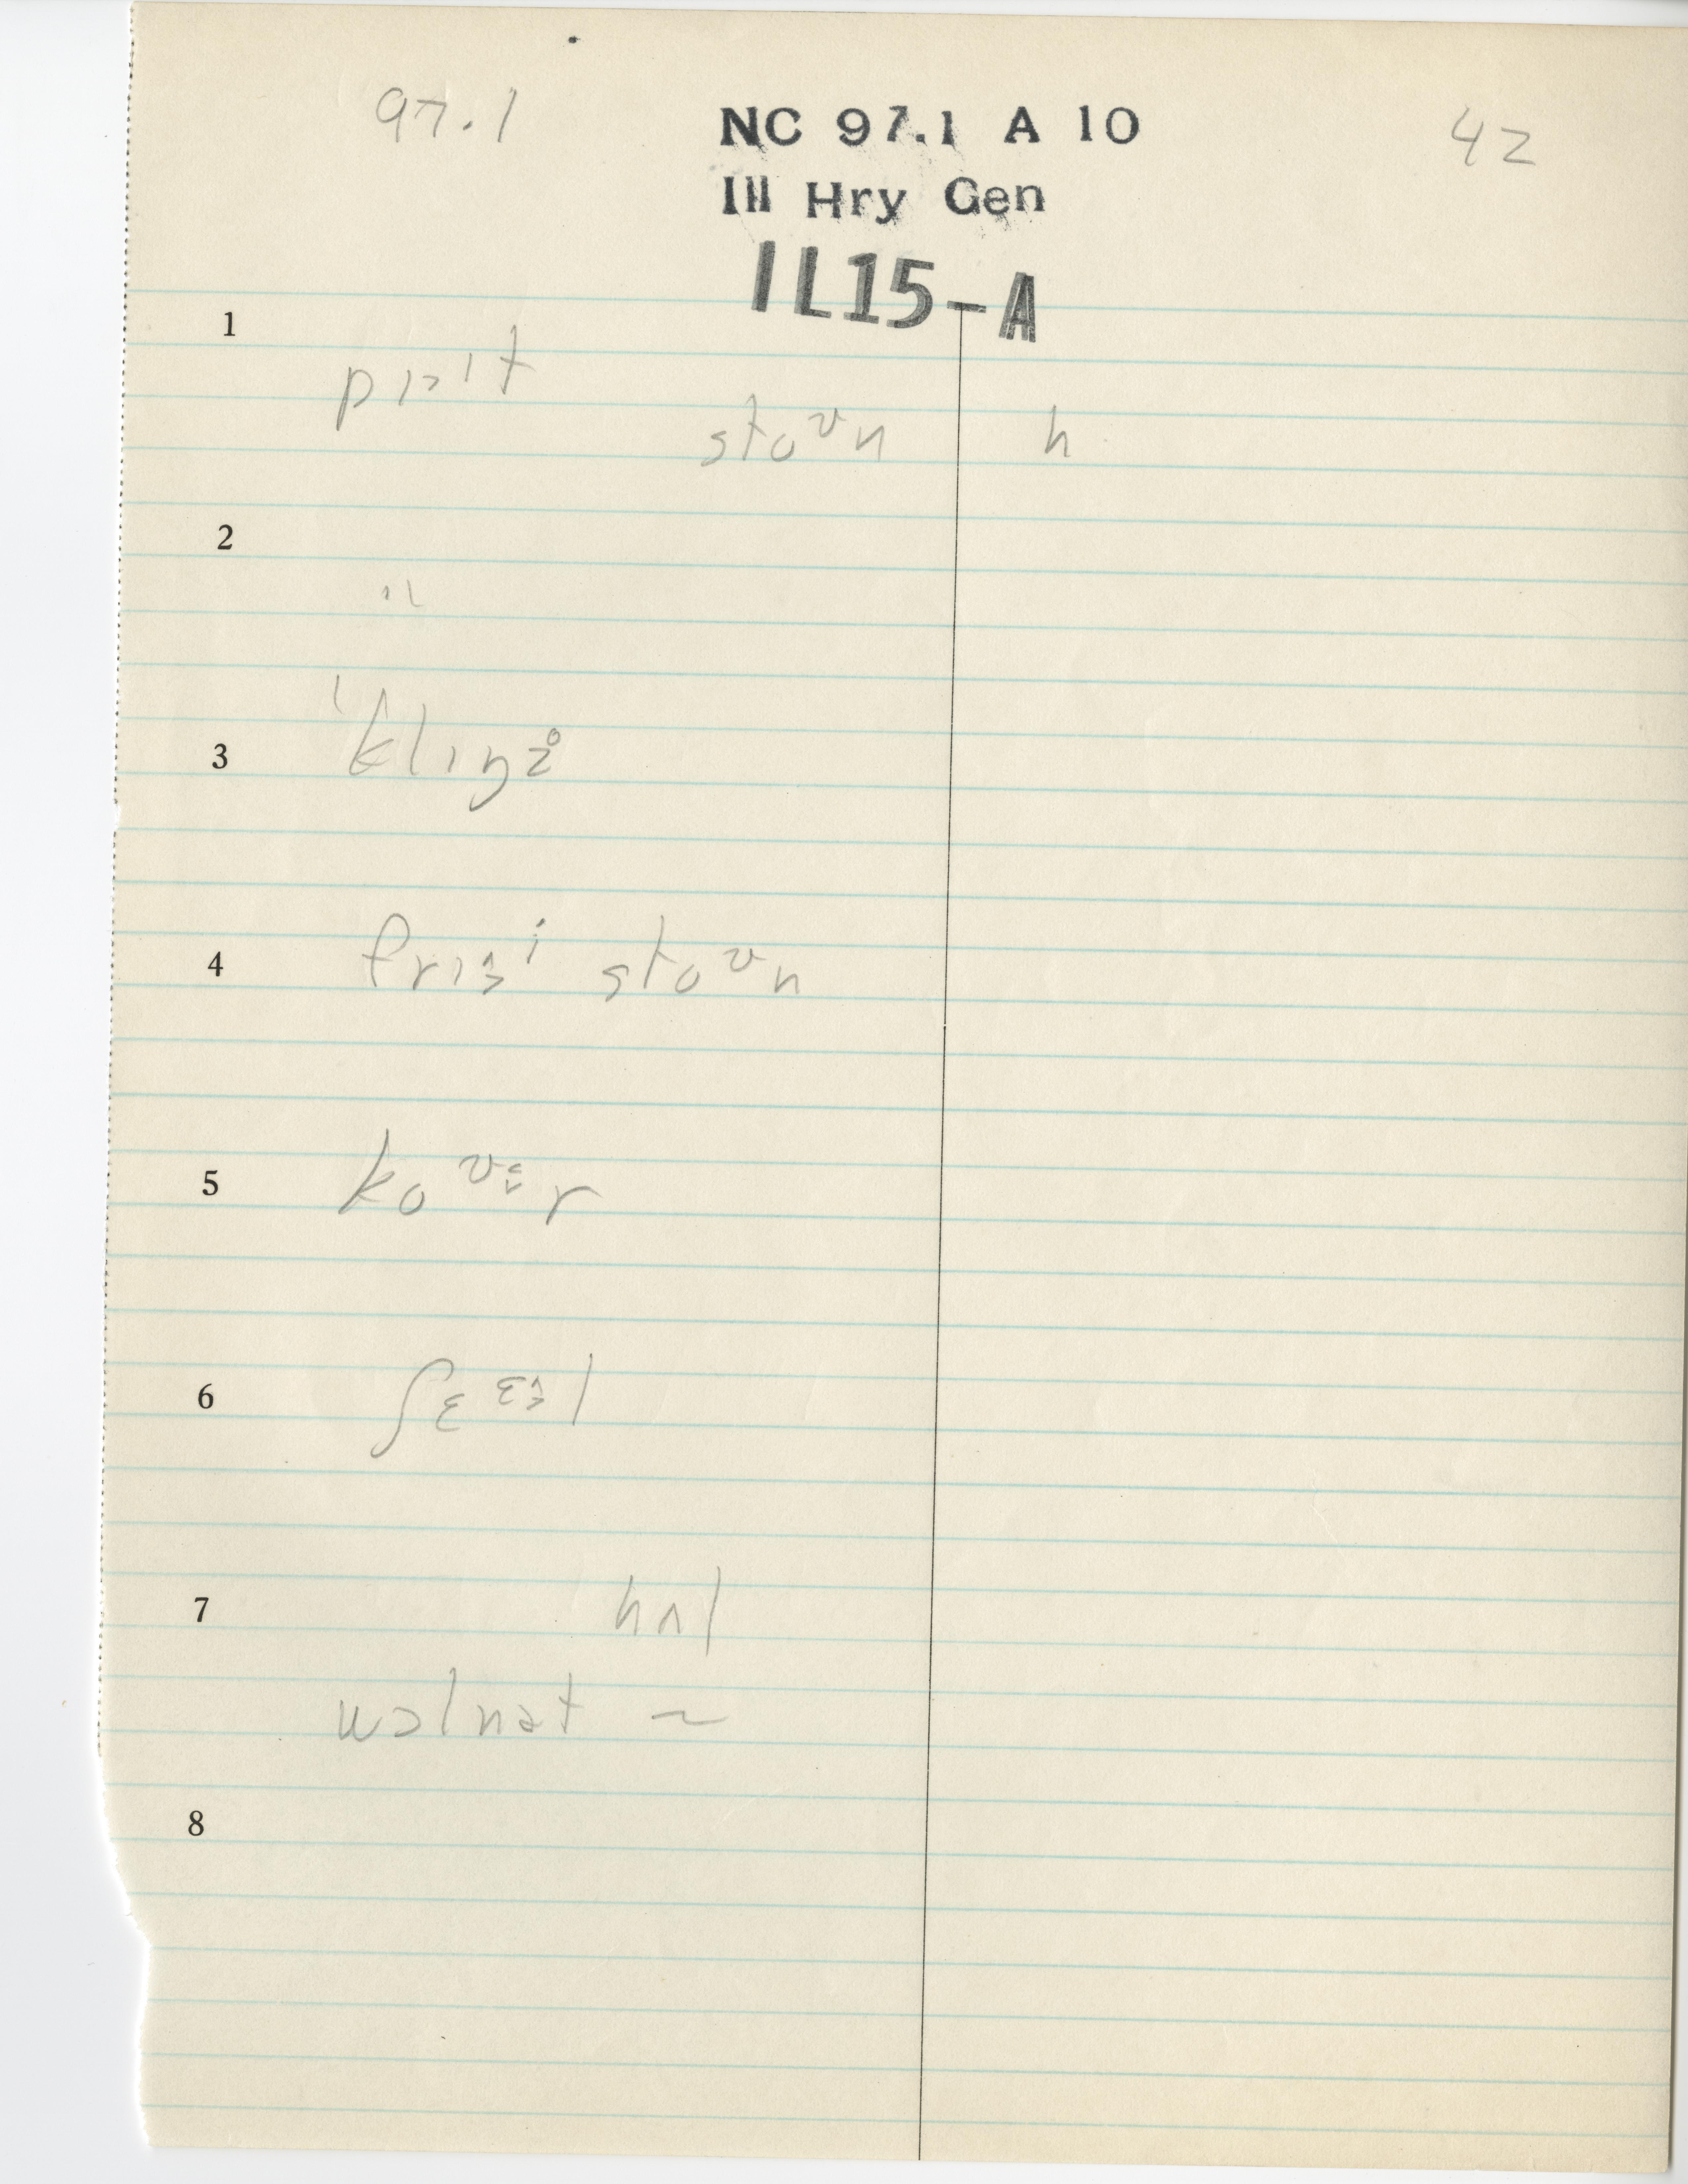 97.1 NC 97.1 A 10 42
Ill Hry Gen
IL15-A
1
pɪ>ˈt
stoᶷn h
2
"
3 ˈklɪŋz̥
4 frɪɜ^i stoᶷn
5 koᶷɚr
6 ʃɛᵋɜl
7 hʌl
wɔlnət ~
8